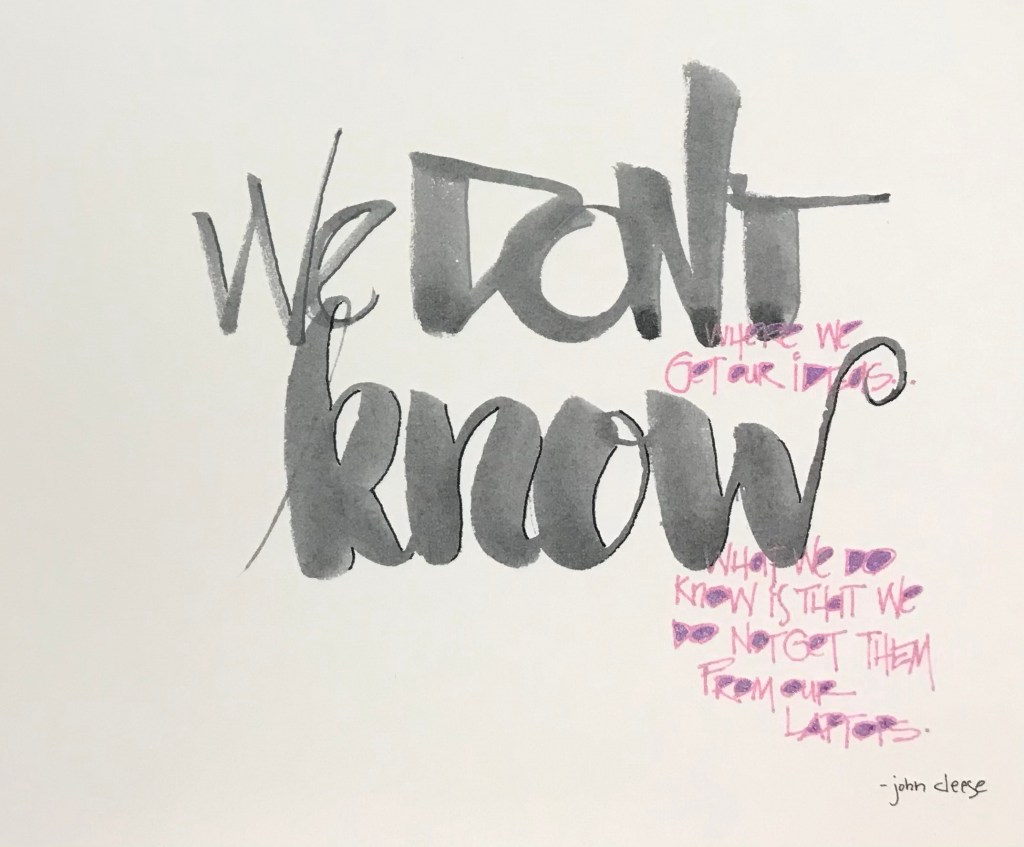 We DONT
WHERE WE
GET OUR IDEAS...
know
WHAT WE DO
KNOW IS THAT WE
DO NOT GET THEM
FROM OUR
LAPTOPS.
- john cleese